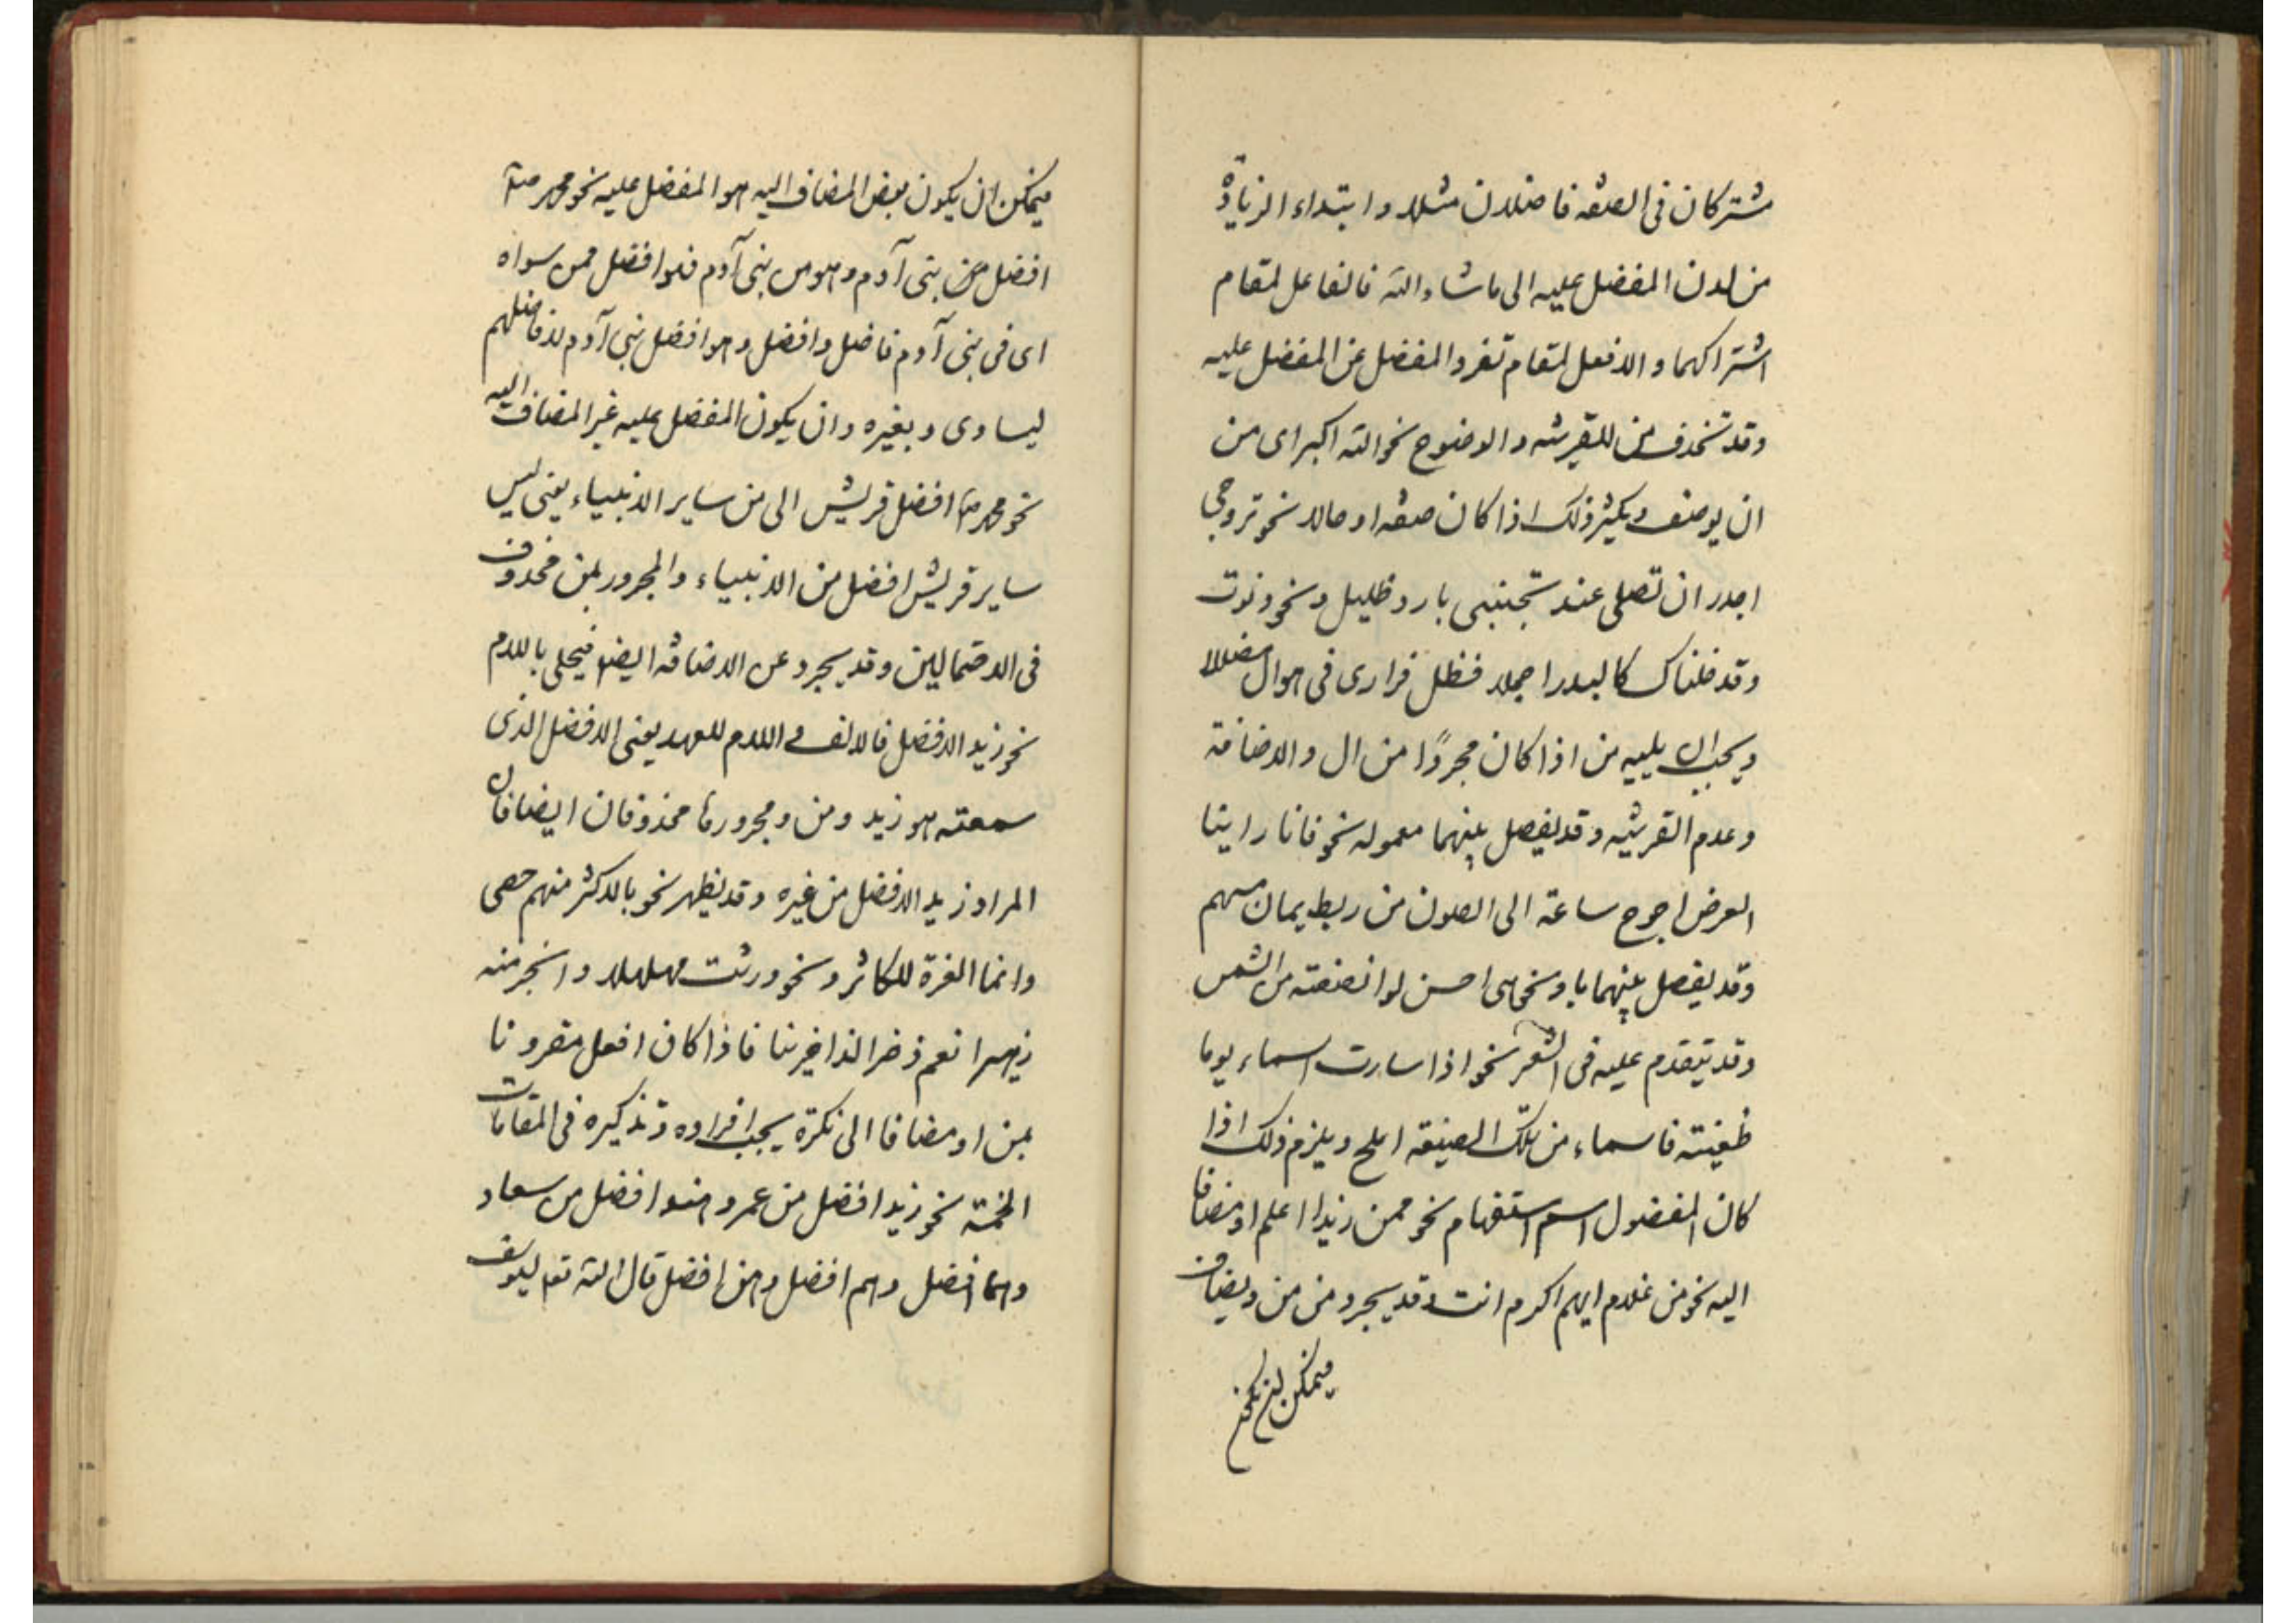 مشتركان فى الصفة فاضلان مثلا وابتداء الزيادة
من لدن المفضل عليه الى ما شاء الله فالفاعل لمقام
اشتراكهما والافعل لمقام تفرد المفضل عن المفضل عليه
وقد تحذف من للقرينة والوضوح نحو الله اكبر اى من
ان يوصف ويكثر ذلك اذا كان صفة او حالا نحو تروحى
اجدر ان تصلى عند تجنبى بارد ظليل ونحو دنوت
وقد خلناك كالبدر اجملا فظل فؤادى فى هواك مضللا
ويجب ان يليه من اذا كان مجردًا من ال والاضافة
وعدم القرينة وقد يفصل بينهما معموله نحو فانا راينا
العرض احوج ساعة الى الصون من ريط يمان مسهم
وقد يفصل بينهما بلو نحو هى احسن لو انصفته من الشمس
وقد يتقدم عليه فى الشعر نحو اذا سارت اسماء يوما
ظعينته فاسماء من تلك الضعينة املح ويلزم ذلك اذا
كان المفضول اسم استفهام نحو ممن زيدا اعلم او مضافا
اليه نحو من غلام ايهم اكرم انت وقد يجرد من من ويضاف
فيمكن ان يكون
فيمكن ان يكون بعض المضاف اليه هو المفضل عليه نحو محمد ص
افضل من بنى آدم وهو من بنى آدم فهو افضل ممن سواه
اى فى بنى آدم فاضل وافضل وهو افضل بنى آدم لا فاضلهم
ليساوى وبغيره وان يكون المفضل عليه غير المضاف اليه
نحو محمد ص افضل قريش الى من ساير الانبياء يعنى ليس
ساير قريش افضل من الانبياء والمجرور بمن محذوف
فى الاحتمالين وقد يجرد عن الاضافة ايضا فيحلى باللام
نحو زيد الافضل فالالف واللام للعهد يعنى الافضل الذى
سمعته هو زيد ومن ومجرورها محذوفان ايضا فان
المراد زيد الافضل من غيره وقد يظهر نحو بالاكثر منهم حصى
وانما العزة للكاثر ونحو ورثت مهلهلا والخير منه
زهيرا نعم ذخر الذاخرينا فاذا كان افعل مقرونا
بمن او مضافا الى نكرة يجب افراده وتذكيره فى المقامات
الخمسة نحو زيد افضل من عمرو وهند افضل من سعاد
وهما افضل وهم افضل وهن افضل قال الله تع ليوسف